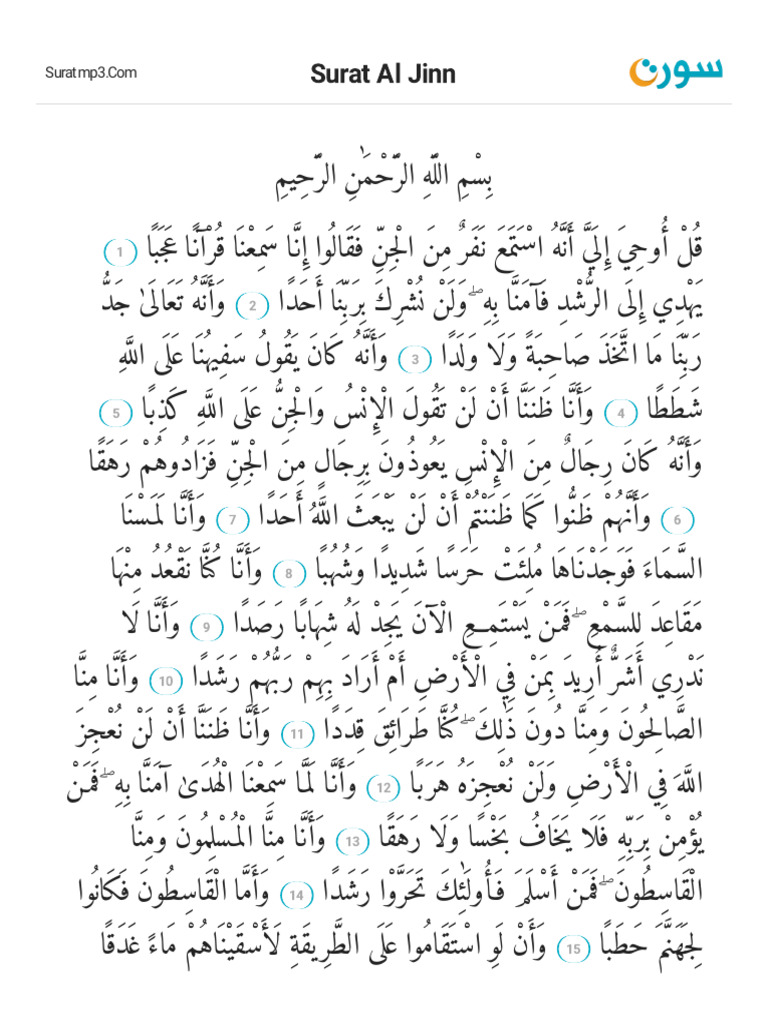 Suratmp3.Com
Surat Al Jinn
سورة
بِسْمِ اللَّهِ الرَّحْمَٰنِ الرَّحِيمِ
قُلْ أُوحِيَ إِلَيَّ أَنَّهُ اسْتَمَعَ نَفَرٌ مِنَ الْجِنِّ فَقَالُوا إِنَّا سَمِعْنَا قُرْآنًا عَجَبًا 1
يَهْدِي إِلَى الرُّشْدِ فَآمَنَّا بِهِ ۖ وَلَنْ نُشْرِكَ بِرَبِّنَا أَحَدًا 2 وَأَنَّهُ تَعَالَىٰ جَدُّ
رَبِّنَا مَا اتَّخَذَ صَاحِبَةً وَلَا وَلَدًا 3 وَأَنَّهُ كَانَ يَقُولُ سَفِيهُنَا عَلَى اللَّهِ
شَطَطًا 4 وَأَنَّا ظَنَنَّا أَنْ لَنْ تَقُولَ الْإِنْسُ وَالْجِنُّ عَلَى اللَّهِ كَذِبًا 5
وَأَنَّهُ كَانَ رِجَالٌ مِنَ الْإِنْسِ يَعُوذُونَ بِرِجَالٍ مِنَ الْجِنِّ فَزَادُوهُمْ رَهَقًا
6 وَأَنَّهُمْ ظَنُّوا كَمَا ظَنَنْتُمْ أَنْ لَنْ يَبْعَثَ اللَّهُ أَحَدًا 7 وَأَنَّا لَمَسْنَا
السَّمَاءَ فَوَجَدْنَاهَا مُلِئَتْ حَرَسًا شَدِيدًا وَشُهُبًا 8 وَأَنَّا كُنَّا نَقْعُدُ مِنْهَا
مَقَاعِدَ لِلسَّمْعِ ۖ فَمَنْ يَسْتَمِعِ الْآنَ يَجِدْ لَهُ شِهَابًا رَصَدًا 9 وَأَنَّا لَا
نَدْرِي أَشَرٌّ أُرِيدَ بِمَنْ فِي الْأَرْضِ أَمْ أَرَادَ بِهِمْ رَبُّهُمْ رَشَدًا 10 وَأَنَّا مِنَّا
الصَّالِحُونَ وَمِنَّا دُونَ ذَٰلِكَ ۖ كُنَّا طَرَائِقَ قِدَدًا 11 وَأَنَّا ظَنَنَّا أَنْ لَنْ نُعْجِزَ
اللَّهَ فِي الْأَرْضِ وَلَنْ نُعْجِزَهُ هَرَبًا 12 وَأَنَّا لَمَّا سَمِعْنَا الْهُدَىٰ آمَنَّا بِهِ ۖ فَمَنْ
يُؤْمِنْ بِرَبِّهِ فَلَا يَخَافُ بَخْسًا وَلَا رَهَقًا 13 وَأَنَّا مِنَّا الْمُسْلِمُونَ وَمِنَّا
الْقَاسِطُونَ ۖ فَمَنْ أَسْلَمَ فَأُولَٰئِكَ تَحَرَّوْا رَشَدًا 14 وَأَمَّا الْقَاسِطُونَ فَكَانُوا
لِجَهَنَّمَ حَطَبًا 15 وَأَنْ لَوِ اسْتَقَامُوا عَلَى الطَّرِيقَةِ لَأَسْقَيْنَاهُمْ مَاءً غَدَقًا